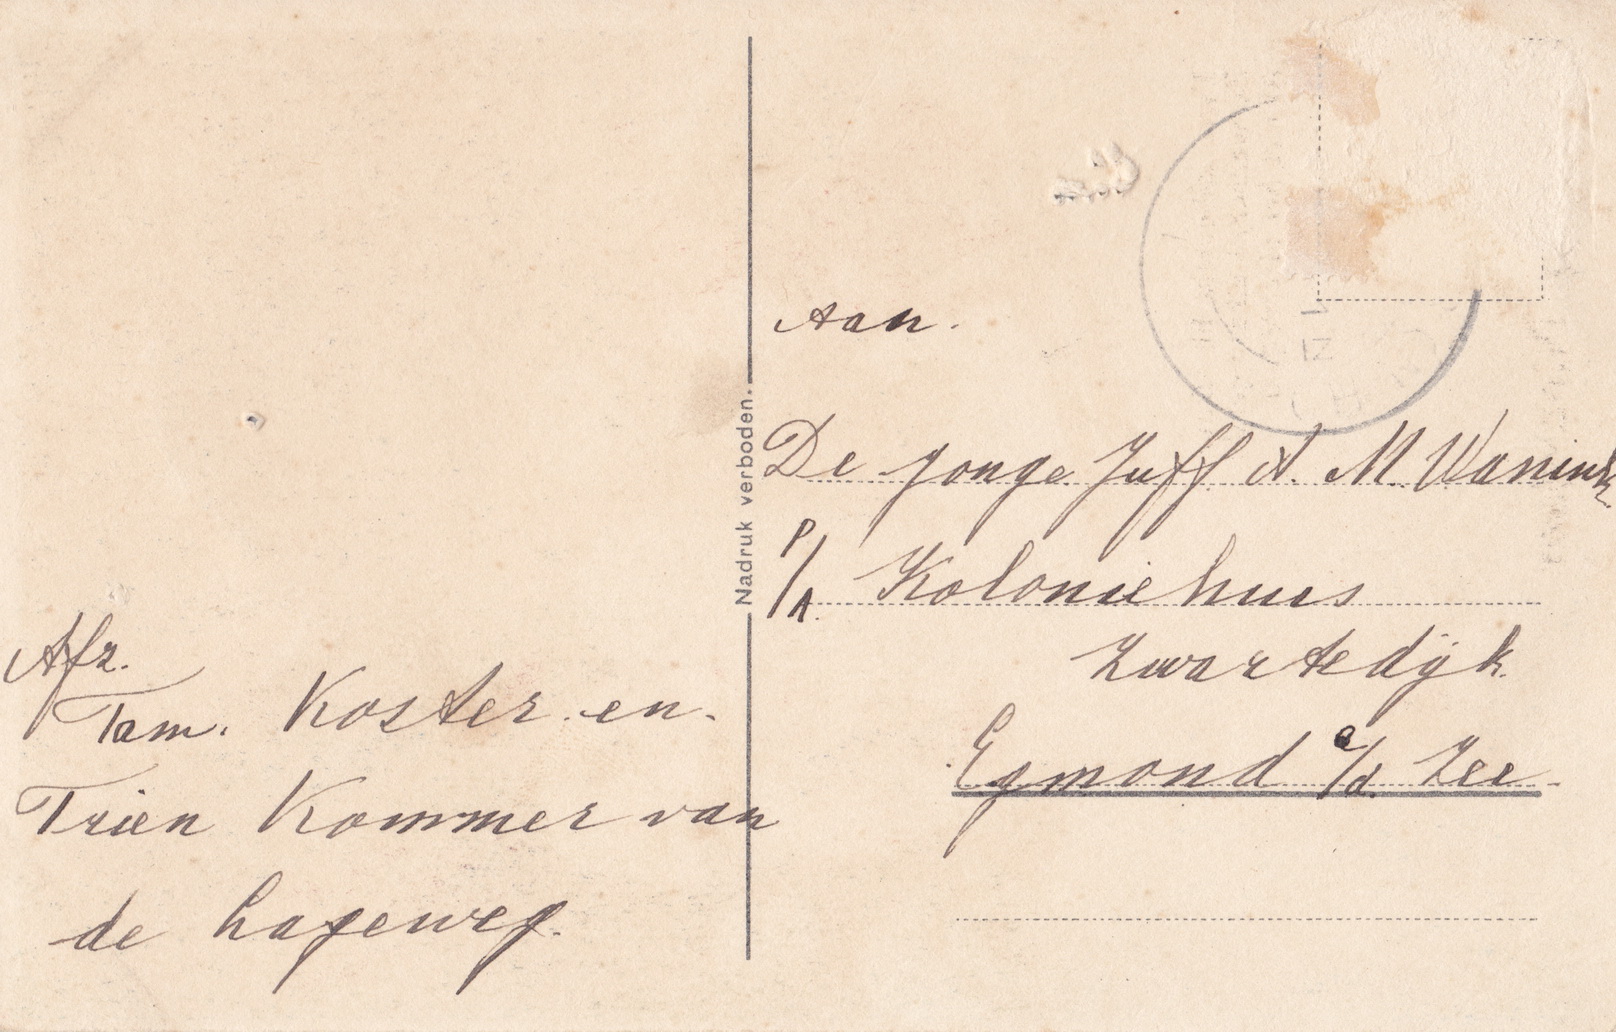 Afz.
Fam. Koster en.
Trien Kommer van
de hageweg.
Nadruk verboden.
Aan.
De jonge Juff A. M. Wanink
P/A. Koloniehuis
Zwartedijk.
Egmond a/d. Zee